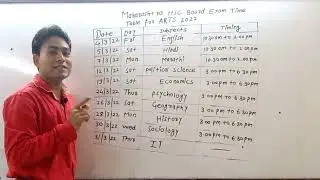 Maharashtra HSC Board Exam Time
Table for ARTS 2022
Date Day Subjects Timing
4/3/22 Fri English 10.30am to 2.00pm
5/3/22 Sat Hindi 10.30am to 2.00pm
7/3/22 Mon Marathi 10.30am to 2.00pm
12/3/22 Sat political science 3.00pm to 6.30pm
19/3/22 Sat Economics 3.00pm to 6.30pm
24/3/22 Thus psychology 3.00pm to 6.30pm
26/3/22 Sat Geography 3.00pm to 6.30pm
28/3/22 Mon History 3.00pm to 6.30pm
30/3/22 wed Sociology 3.00pm to 6.30pm
31/3/22 Thus IT